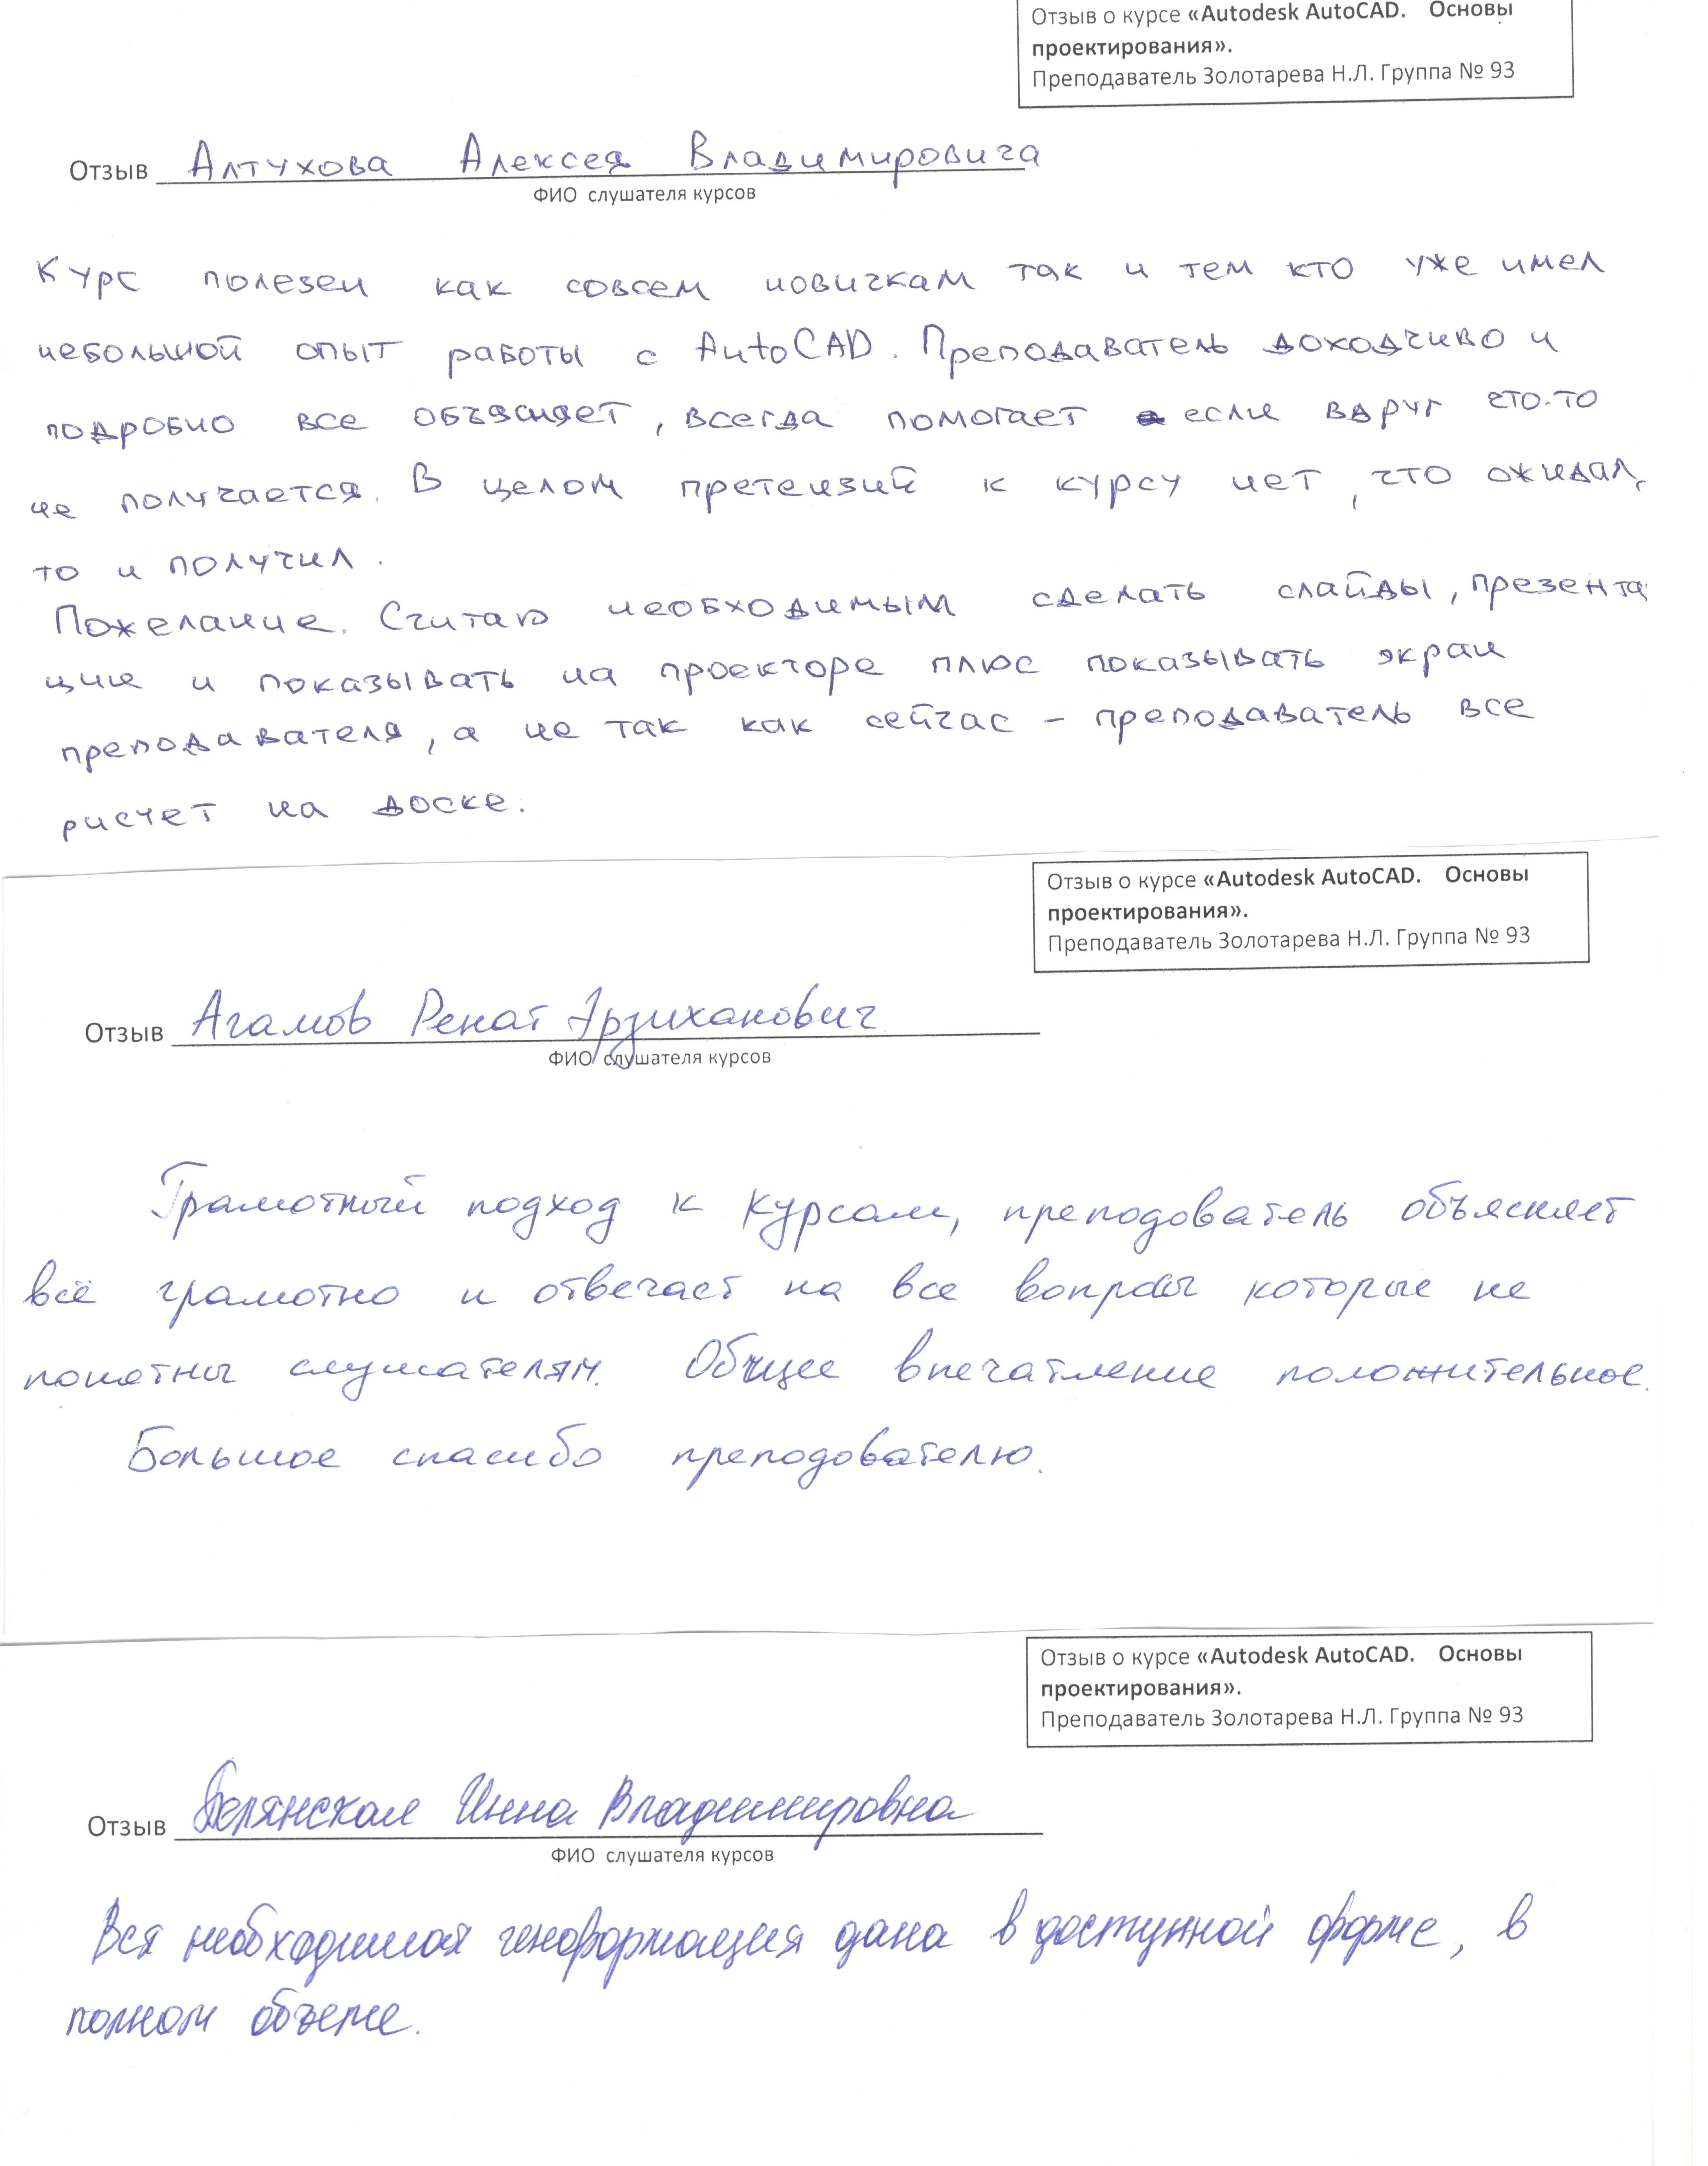 Отзыв о курсе «Autodesk AutoCAD. Основы
проектирования».
Преподаватель Золотарева Н.Л. Группа № 93
Отзыв Алтухова Алексея Владимировича
ФИО слушателя курсов
Курс полезен как совсем новичкам так и тем кто уже имел
небольшой опыт работы с AutoCAD. Преподаватель доходчиво и
подробно все объясняет, всегда помогает если вдруг что-то
не получается. В целом претензий к курсу нет, что ожидал,
то и получил.
Пожелание. Считаю необходимым сделать слайды, презента
ции и показывать на проекторе плюс показывать экран
преподавателя, а не так как сейчас - преподаватель все
рисует на доске.
Отзыв о курсе «Autodesk AutoCAD. Основы
проектирования».
Преподаватель Золотарева Н.Л. Группа № 93
Отзыв Агамов Ренат Эрзиханович
ФИО слушателя курсов
Грамотный подход к курсам, преподователь объясняет
всё грамотно и отвечает на все вопросы которые не
понятны слушателям. Общее впечатление положительное.
Большое спасибо преподователю.
Отзыв о курсе «Autodesk AutoCAD. Основы
проектирования».
Преподаватель Золотарева Н.Л. Группа № 93
Отзыв Инна Владимировна
ФИО слушателя курсов
Вся необходимая информация дана в доступной форме, в
полном объеме.